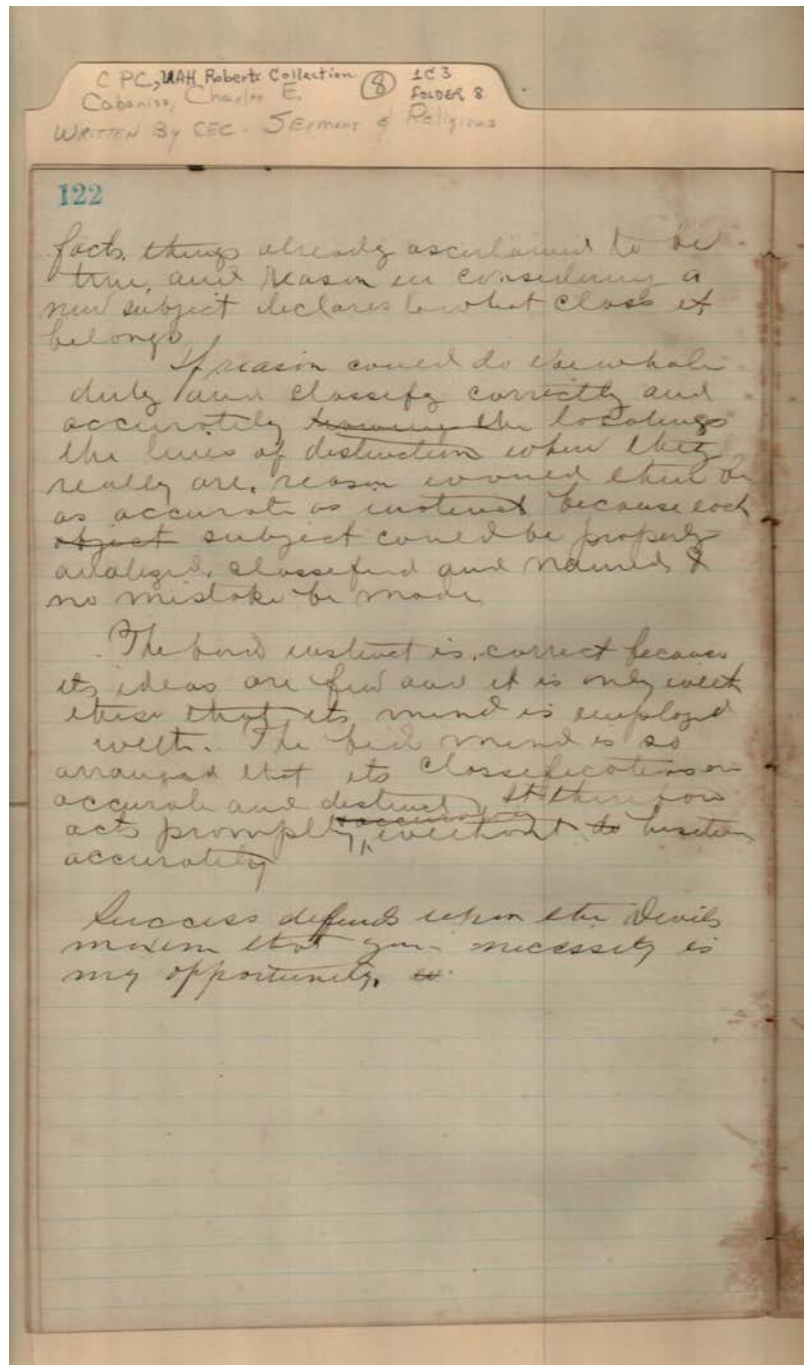 CPC, UAH Roberts Collection ⑧ 1C3
Cabaniss, Charles E. FOLDER 8
WRITTEN By CEC - SErmons & Religious
122
facts, things already ascertained to be
true, and reason in considering a
new subject declares to what class it
belongs.
If reason could do the whole
duty and classify correctly and
accurately the locatings
the lines of distinction when they
really are, reason would then be
as accurate as instinct because each
object subject could be properly
analized, classefied and named &
no mistake be made
The bird instinct is correct because
its ideas are few and it is only with
these that its mind is employed
with. The bird mind is so
arranged that its classifications are
accurate and distinct, It therefore
acts promptly, without to hesitation
accurately
Success depends upon the Devils
maxim that your necessity is
my opportunity.